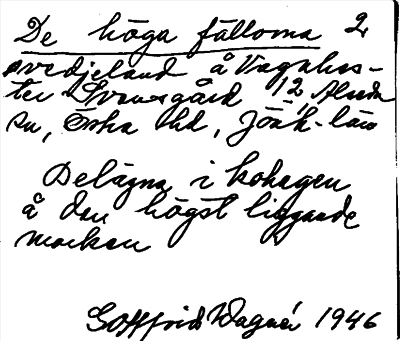 De höga fällorna 2
svedjeland å Vagnhes-
ter Svensgård 12, Alseda
sn, Östra hd, Jönk-län
Belägna i kohagen
å den högst liggande
marken
Gottfrid Wagnér 1946